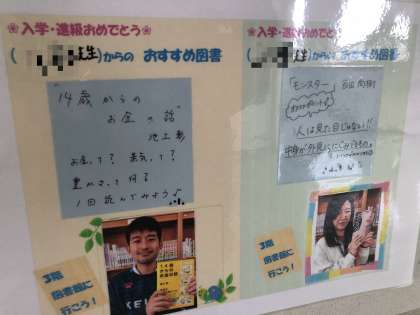 ❀入学・進級おめでとう❀
先生)からの おすすめ図書
"14歳からの
お金の話"
池上 彰
お金って? 景気って?
1回読んでみよう♪
3階
図書館に
行こう!
❀入学・進級おめでとう❀
先生)からの おすすめ図書
「モンスター」 百田 尚樹
人は見た目じゃない!!
3階
図書館に
行こう!